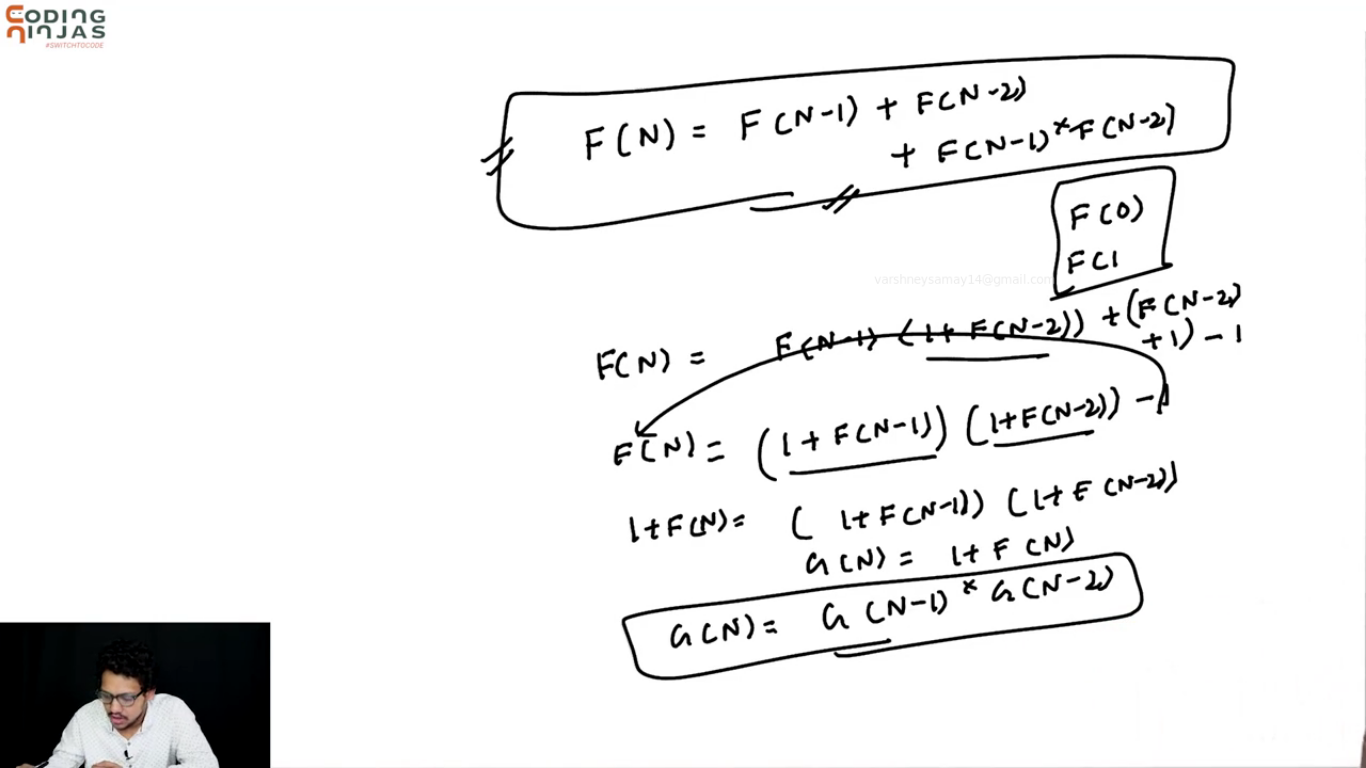 CODING
NINJAS
#SWITCHTOCODE
F(N) = F(N-1) + F(N-2)
+ F(N-1) * F(N-2)
F(0)
F(1
varshneysamay14@gmail.com
F(N) = F(N-1) (1+F(N-2)) + (F(N-2)
+1) - 1
F(N) = (1+F(N-1)) (1+F(N-2)) - 1
1+F(N) = ( 1+F(N-1)) (1+F(N-2))
G(N) = 1+F(N)
G(N) = G(N-1) * G(N-2)